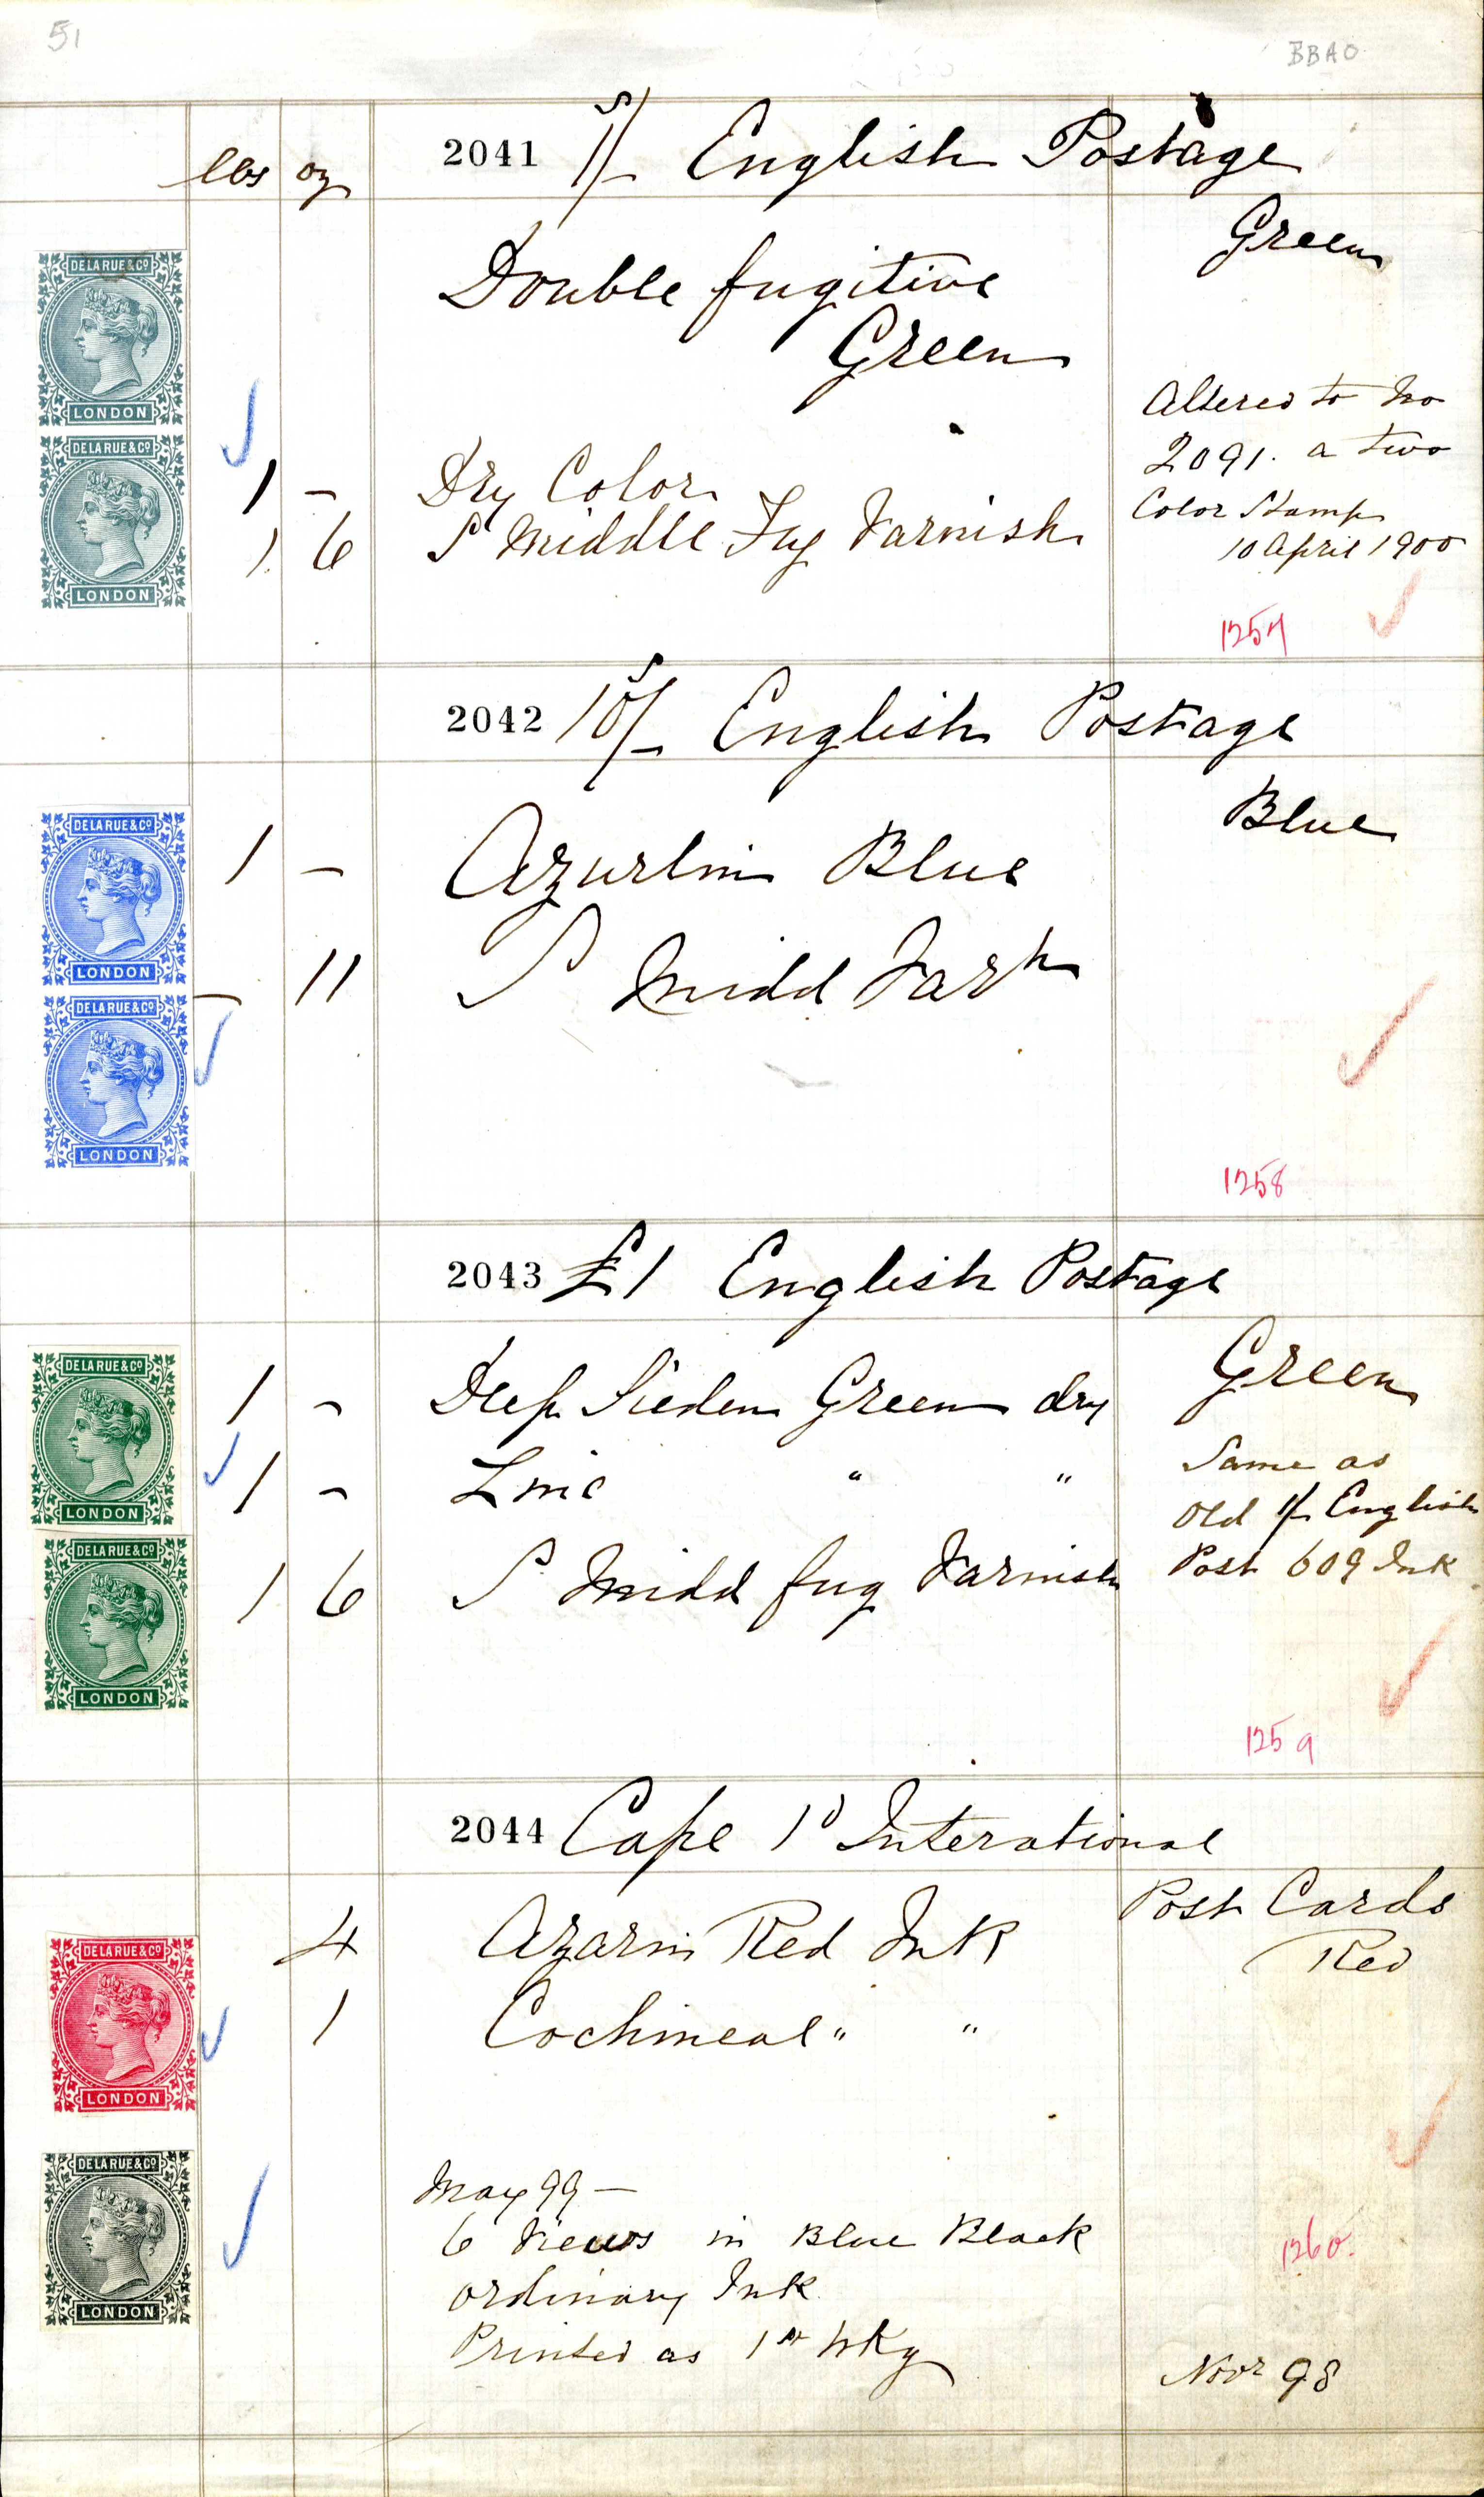 51
BBAO
lbs oz
2041 1/- English Postage
Green
Double fugitive
Green
Altered to No
2091. a two
Color Stamp
10 April 1900
1 - Dry Color
1 6 S Middle Fug Varnish
1257
DE LA RUE & CO
LONDON
DE LA RUE & CO
LONDON
2042 10/- English Postage
Blue
1 - Azurlin Blue
- 11 S Midd Varh
1258
DE LA RUE & CO
LONDON
DE LA RUE & CO
LONDON
2043 £1 English Postage
Green
1 - Deep Sieden Green dry
1 - Zinc " "
1 6 S Midd fug Varnish
Same as
Old 1/- English
Post 609 Ink
1259
DE LA RUE & CO
LONDON
DE LA RUE & CO
LONDON
2044 Cape 1d Interational
Post Cards
Red
4 Azarin Red Ink
1 Cochineal " "
May 99 -
6 Views in Blue Black
ordinary Ink
Printed as 1st Wkg
1260.
Novr 98
DE LA RUE & CO
LONDON
DE LA RUE & CO
LONDON